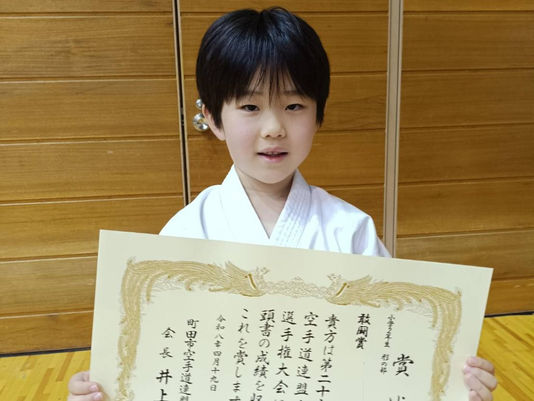 賞
小学2年生 形の部
敢闘賞
貴方は第二十
空手道連盟
選手権大会
頭書の成績を収
これを賞しま
令和八年四月十九日
町田市空手道連盟
会長 井上